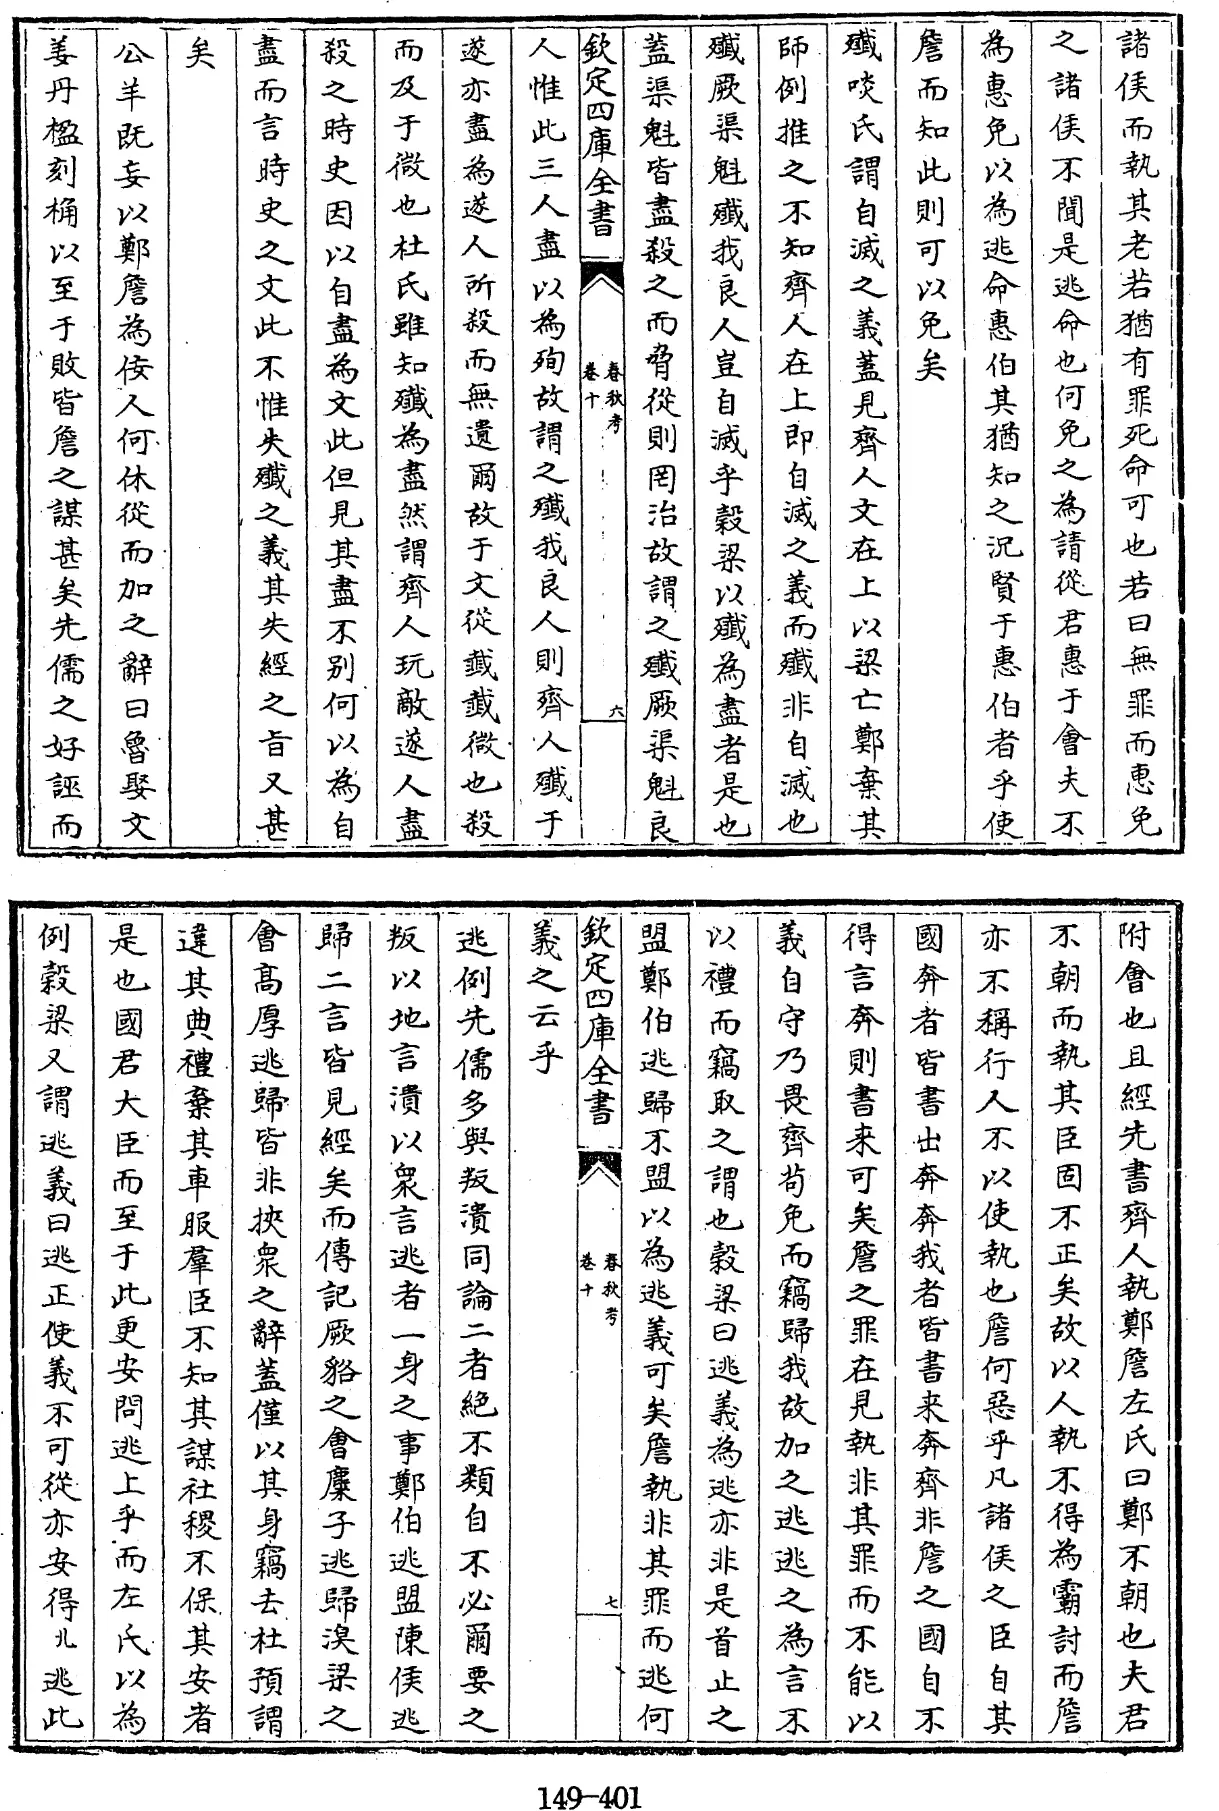 諸侯而執其老若猶有罪死命可也若曰無罪而惠免
之諸侯不聞是逃命也何免之為請從君惠于會夫不
為惠免以為逃命惠伯其猶知之況賢于惠伯者乎使
詹而知此則可以免矣
殲啖氏謂自滅之義蓋見齊人文在上以梁亡鄭棄其
師例推之不知齊人在上即自滅之義而殲非自滅也
殲厥渠魁殲我良人豈自滅乎穀梁以殲為盡者是也
蓋渠魁皆盡殺之而脅從則罔治故謂之殲厥渠魁良
欽定四庫全書
春秋考
卷十
六
人惟此三人盡以為殉故謂之殲我良人則齊人殲于
遂亦盡為遂人所殺而無遺爾故于文從韱韱微也殺
而及于微也杜氏雖知殲為盡然謂齊人玩敵遂人盡
殺之時史因以自盡為文此但見其盡不别何以為自
盡而言時史之文此不惟失殲之義其失經之㫖又甚
矣
公羊既妄以鄭詹為佞人何休從而加之辭曰魯娶文
姜丹楹刻桷以至于敗皆詹之謀甚矣先儒之好誣而
附會也且經先書齊人執鄭詹左氏曰鄭不朝也夫君
不朝而執其臣固不正矣故以人執不得為霸討而詹
亦不稱行人不以使執也詹何惡乎凡諸侯之臣自其
國奔者皆書出奔奔我者皆書來奔齊非詹之國自不
得言奔則書來可矣詹之罪在見執非其罪而不能以
義自守乃畏齊茍免而竊歸我故加之逃逃之為言不
以禮而竊取之謂也穀梁曰逃義為逃亦非是首止之
盟鄭伯逃歸不盟以為逃義可矣詹執非其罪而逃何
欽定四庫全書
春秋考
卷十
七
義之云乎
逃例先儒多與叛潰同論二者絶不類自不必爾要之
叛以地言潰以衆言逃者一身之事鄭伯逃盟陳侯逃
歸二言皆見經矣而傳記厥貉之會麇子逃歸湨梁之
會髙厚逃歸皆非挾衆之辭蓋僅以其身竊去杜預謂
違其典禮棄其車服羣臣不知其謀社稷不保其安者
是也國君大臣而至于此更安問逃上乎而左氏以為
例穀梁又謂逃義曰逃正使義不可從亦安得凡逃此
149-401